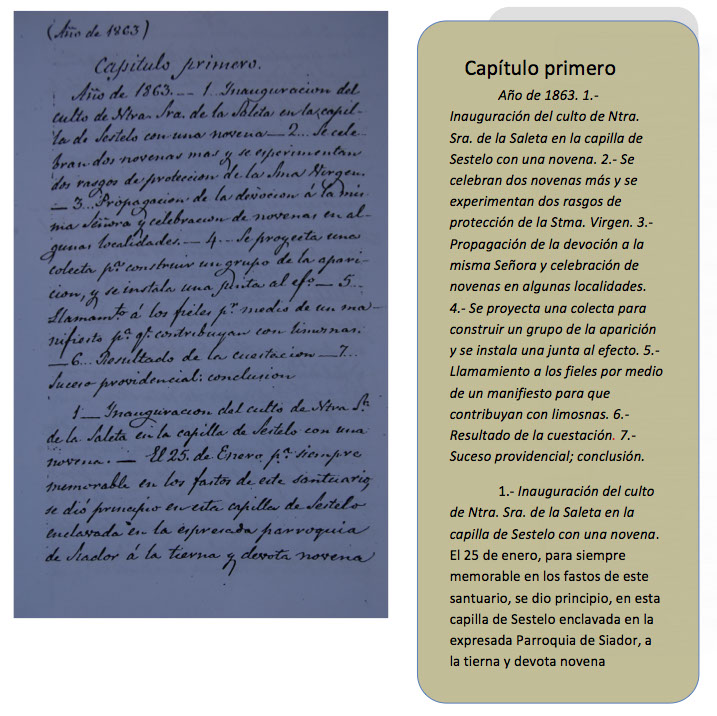 (Año de 1863)
Capitulo primero.
Año de 1863. -- 1.. Inauguracion del
culto de Ntra. Sra. de la Saleta en la capi-
lla de Sestelo con una novena -- 2... Se cele-
bran dos novenas mas y se esperimentan
dos rasgos de proteccion de la Sma Virgen.
-- 3.. Propagacion de la devocion á la mis-
ma Señora y celebracion de novenas en al-
gunas localidades. -- 4.. Se proyecta una
colecta pa. construir un grupo de la apari-
cion, y se instala una junta al efo -- 5...
Llamamto á los fieles pr. medio de un ma-
nifiesto pa. qe. contribuyan con limosnas.
-- 6... Resultado de la cuestacion -- 7...
Suceso providencial: conclusion
1 -- Inauguracion del culto de Ntra Sra.
de la Saleta en la capilla de Sestelo con una
novena. -- El 25. de Enero, pa. siempre
memorable en los fastos de este santuario,
se dió principio en esta capilla de Sestelo
enclavada en la espresada parroquia
de Siador á la tierna y devota novena
Capítulo primero
Año de 1863. 1.-
Inauguración del culto de Ntra.
Sra. de la Saleta en la capilla de
Sestelo con una novena. 2.- Se
celebran dos novenas más y se
experimentan dos rasgos de
protección de la Stma. Virgen. 3.-
Propagación de la devoción a la
misma Señora y celebración de
novenas en algunas localidades.
4.- Se proyecta una colecta para
construir un grupo de la aparición
y se instala una junta al efecto. 5.-
Llamamiento a los fieles por medio
de un manifiesto para que
contribuyan con limosnas. 6.-
Resultado de la cuestación. 7.-
Suceso providencial; conclusión.
1.- Inauguración del culto
de Ntra. Sra. de la Saleta en la
capilla de Sestelo con una novena.
El 25 de enero, para siempre
memorable en los fastos de este
santuario, se dio principio, en esta
capilla de Sestelo enclavada en la
expresada Parroquia de Siador, a
la tierna y devota novena